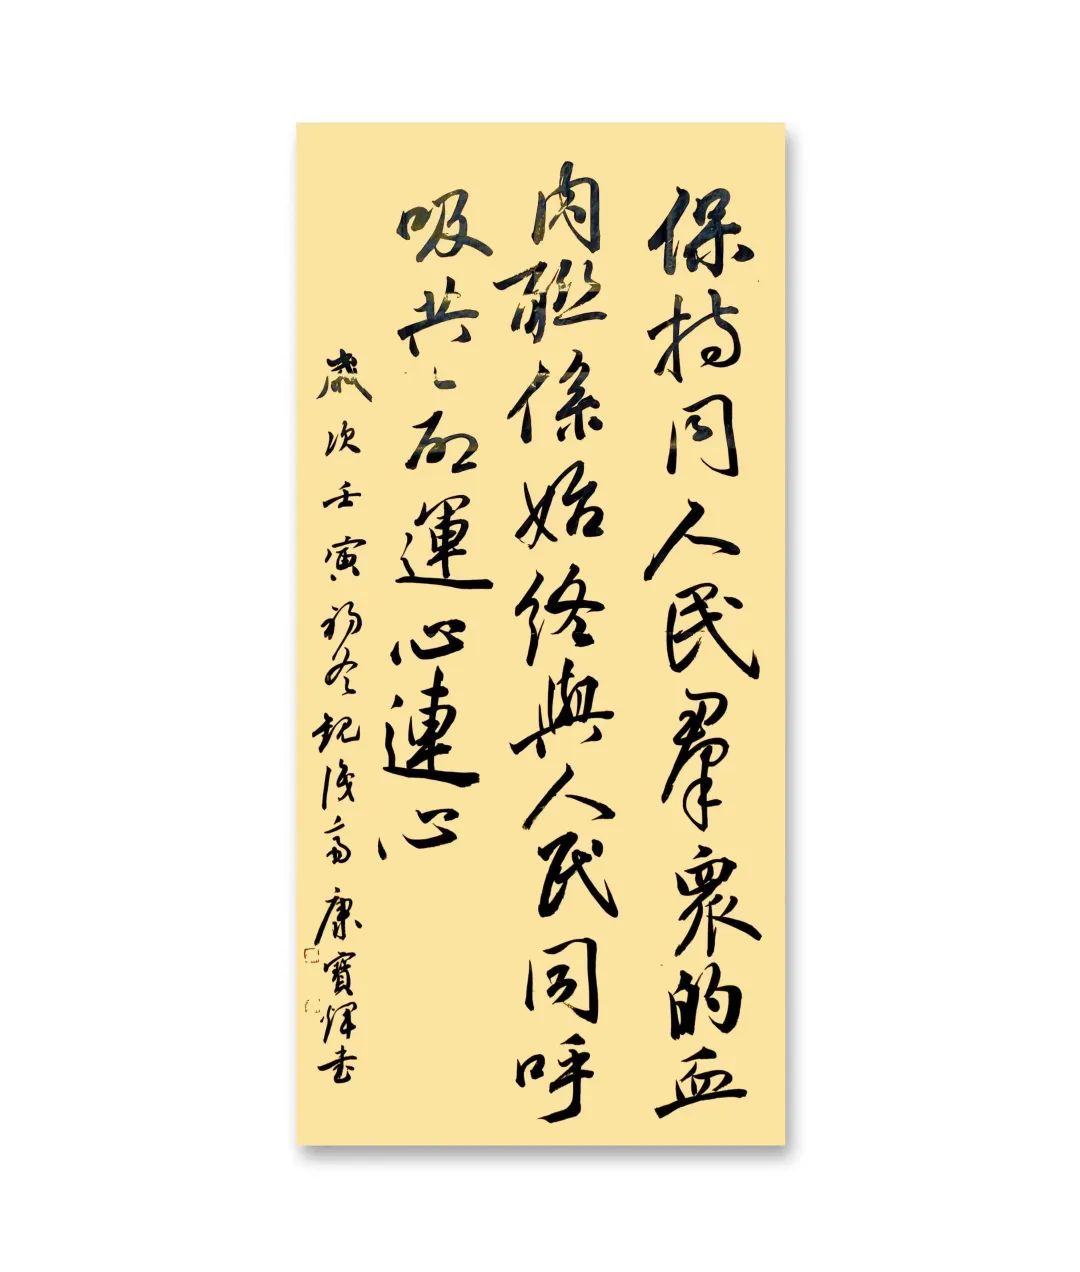 保持同人民羣衆的血
肉聯係始終與人民同呼
吸共命運心連心
歲次壬寅初冬齋康寶輝書